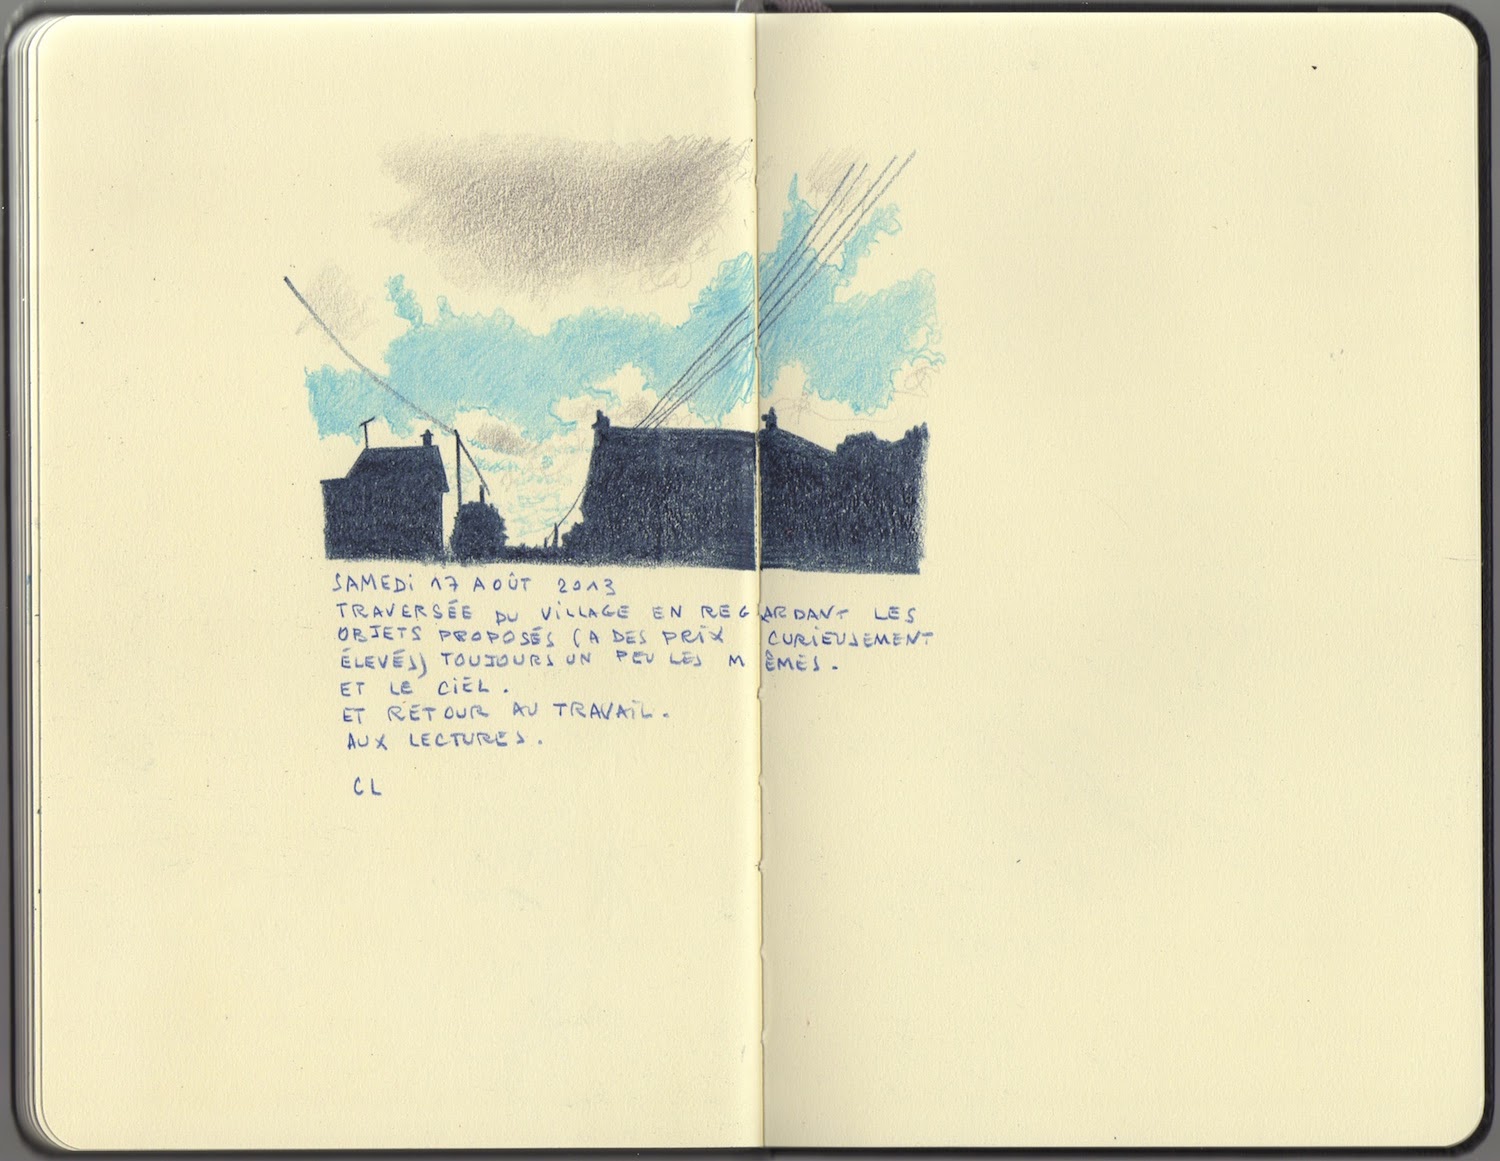 SAMEDI 17 AOÛT 2013
TRAVERSÉE DU VILLAGE EN REGARDANT LES
OBJETS PROPOSÉS (A DES PRIX CURIEUSEMENT
ÉLEVÉS) TOUJOURS UN PEU LES MÊMES.
ET LE CIEL.
ET RETOUR AU TRAVAIL.
AUX LECTURES.
CL